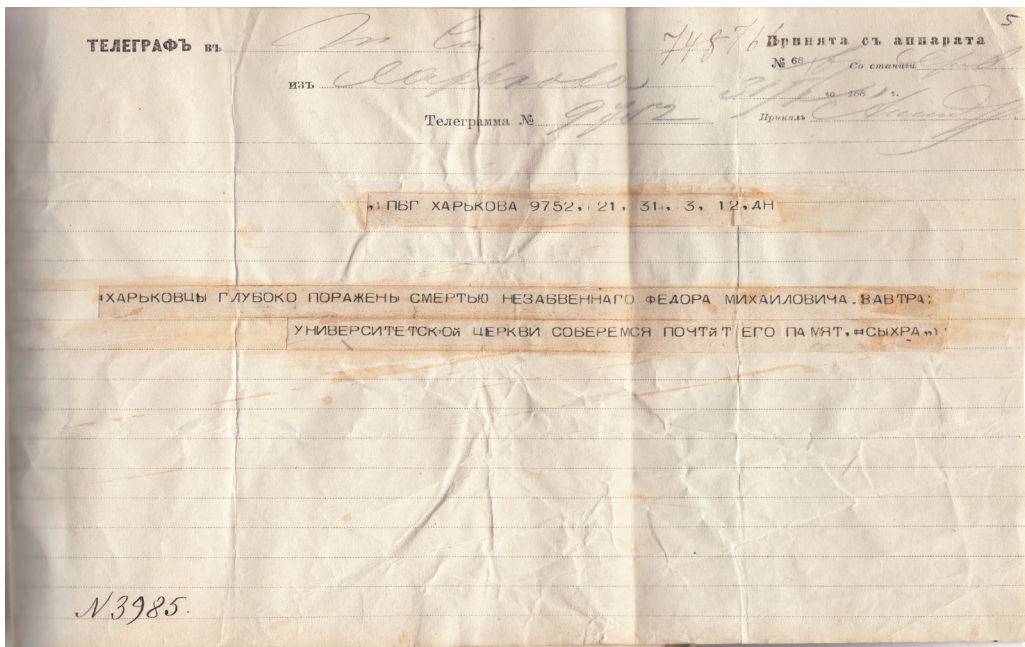 5
ТЕЛЕГРАФЪ въ
7487 Принята съ аппарата
№ 68 Со станціи
изъ Харькова
188 г.
Телеграмма № 9752 Принялъ
„: ПБГ ХАРЬКОВА 9752, 21, 31, 3, 12, ДН
ХАРЬКОВЦЫ ГЛУБОКО ПОРАЖЕНЫ СМЕРТЬЮ НЕЗАБВЕННАГО ФЕДОРА МИХАИЛОВИЧА. ЗАВТРА:
УНИВЕРСИТЕТСКОЙ ЦЕРКВИ СОБЕРЕМСЯ ПОЧТЙТ ЕГО ПАМЯТ, =СЫХРА„:
N 3985.